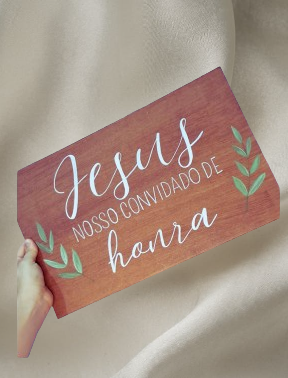 Jesus
NOSSO CONVIDADO DE
honra